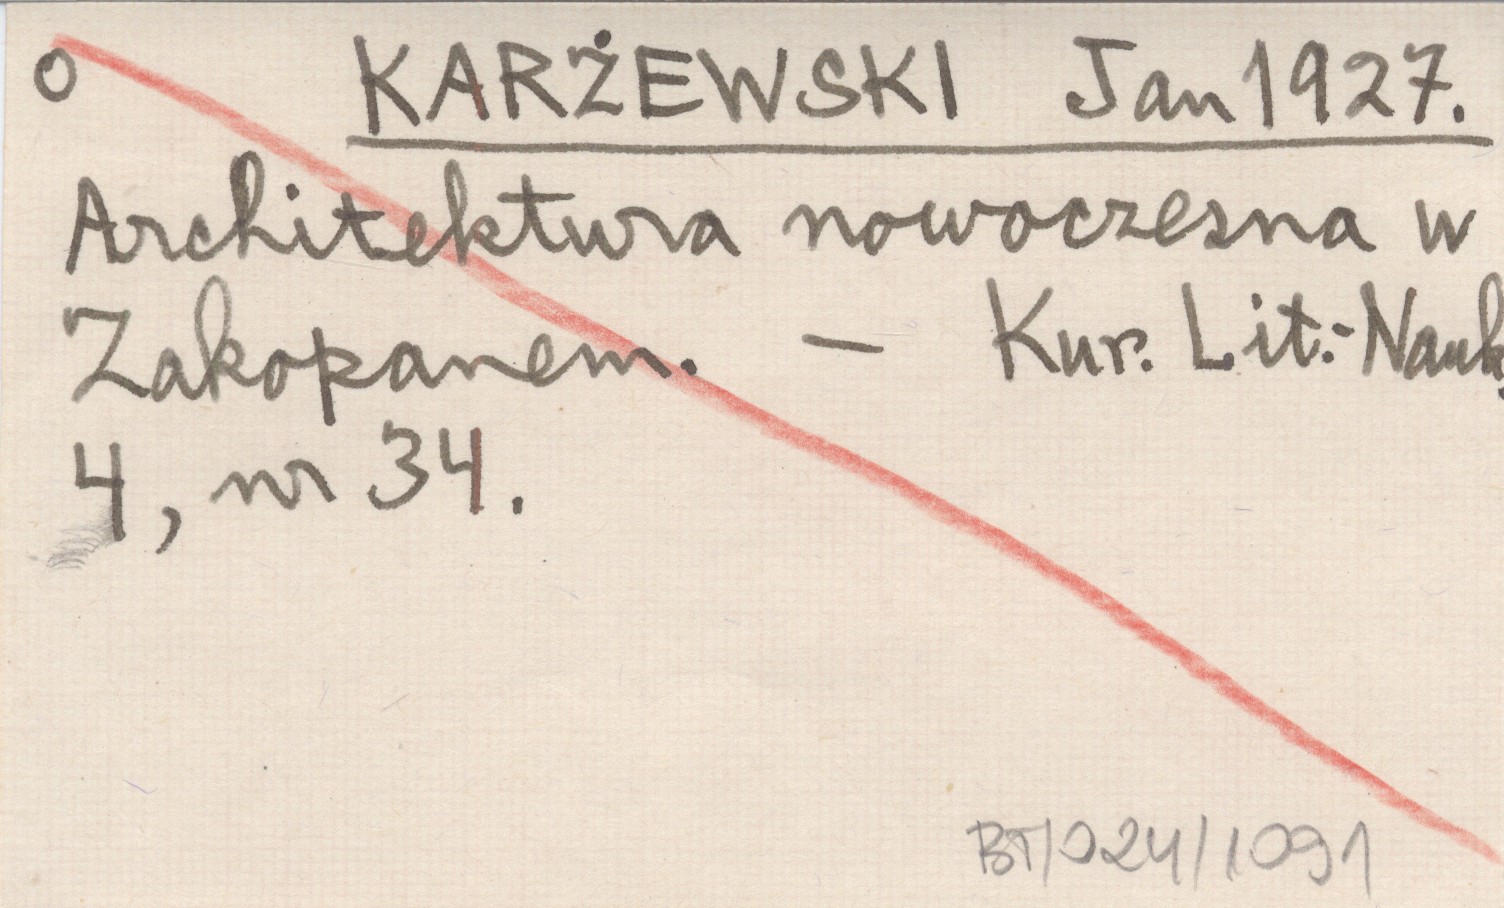 o KARŻEWSKI Jan 1927.
Architektura nowoczesna w
Zakopanem. — Kur. Lit.-Nauk.
4, nr 34.
BT/024/1091